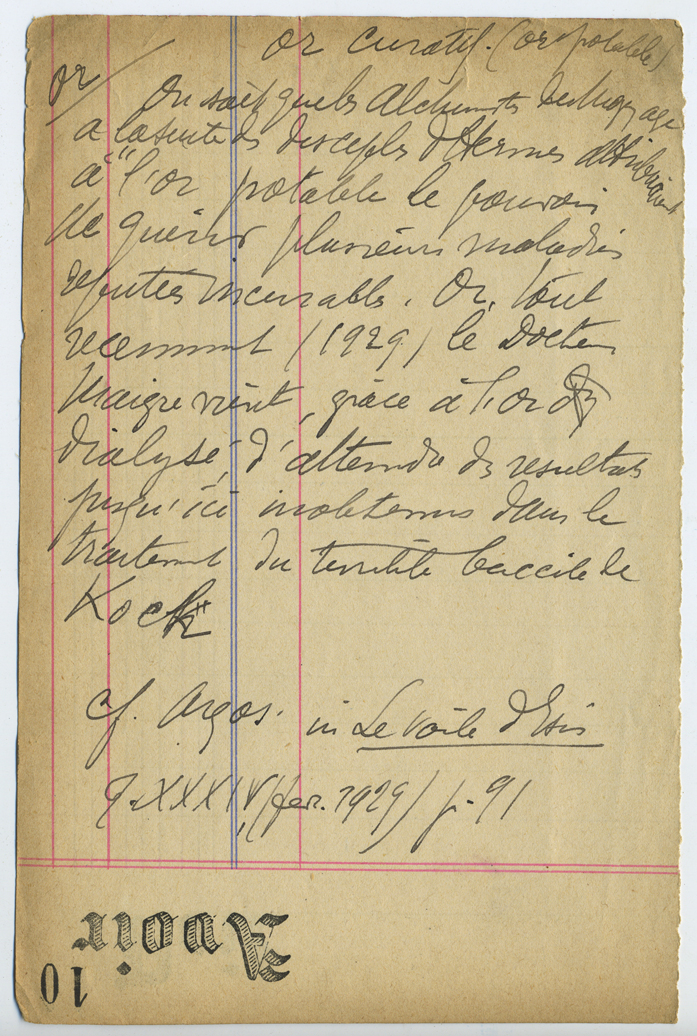 or curatif. (or potable)
or/
On sait que les Alchimistes du moyen age
à la suite des disciples d'Hermes attribuaient
à l'or potable le pouvoir
de guérir plusieurs maladies
réputées incurables. Or, tout
recemment (1929) le Docteur
Maigre vient, grâce à l'or
dialysé, d'attendre des resultats
jusqu'ici inobtenus dans le
traitement du terrible baccile de
Kock
cf. Argos. in Le Voile d'Isis
T. XXXIV, (fev. 1929) p. 91
Avoir
10